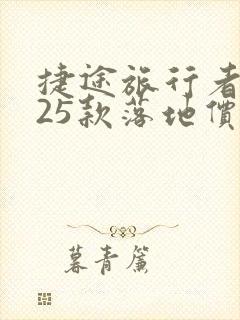 捷途旅行者
25款落地價
暮青簾